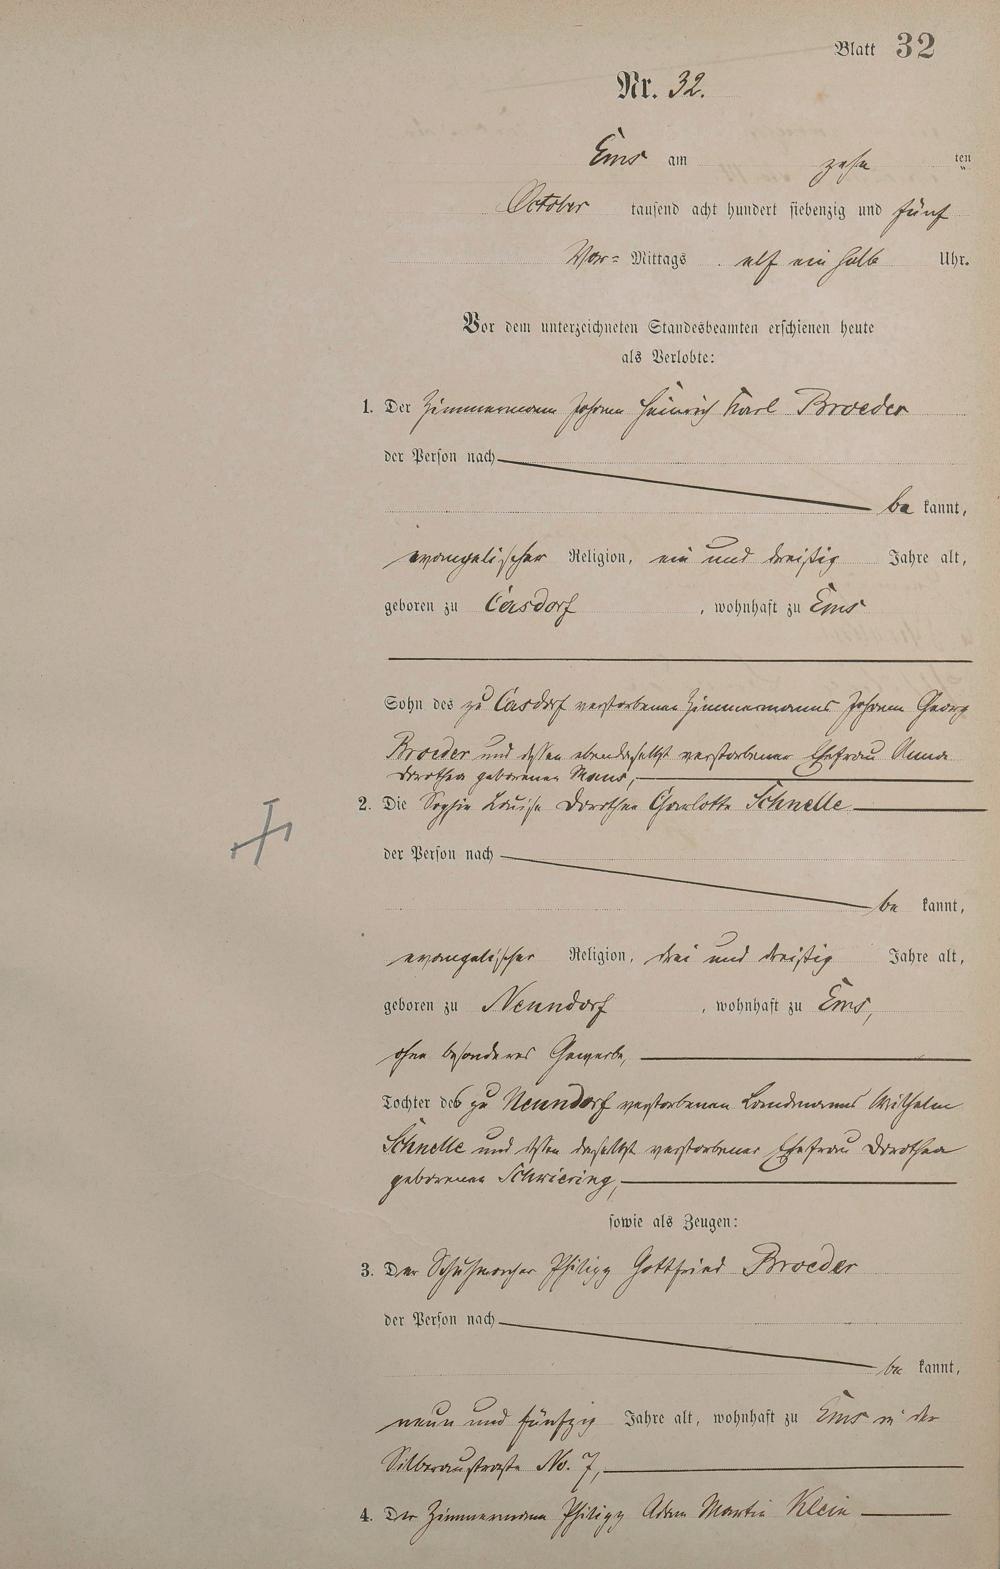 Blatt 32
Nr. 32.
Ems am zehn ten
October tausend acht hundert siebenzig und fünf
Vor= Mittags elf ein halb Uhr.
Vor dem unterzeichneten Standesbeamten erschienen heute
als Verlobte:
1. Der Zimmermann Johann Heinrich Karl Broeder
der Person nach
be kannt,
evangelischer Religion, ein und dreißig Jahre alt,
geboren zu Casdorf, wohnhaft zu Ems
Sohn des zu Casdorf verstorbenen Zimmermanns Johann Georg
Broeder und dessen ebendaselbst verstorbener Ehefrau Anna
Dorothea geborenen
2. Die Sophie Louise Dorothea Charlotte Schnelle
der Person nach
be kannt,
evangelischer Religion, drei und dreißig Jahre alt,
geboren zu Nenndorf, wohnhaft zu Ems,
ohne besonderes Gewerbe,
Tochter des zu Nenndorf verstorbenen Landmanns Wilhelm
Schnelle und dessen daselbst verstorbener Ehefrau Dorothea
geborenen Schwiering,
sowie als Zeugen:
3. Der Schuhmacher Philipp Gottfried Broeder
der Person nach
be kannt,
neun und fünfzig Jahre alt, wohnhaft zu Ems in der
Silberaustraße No. 7,
4. Der Zimmermann Philipp Adam Martin Klein